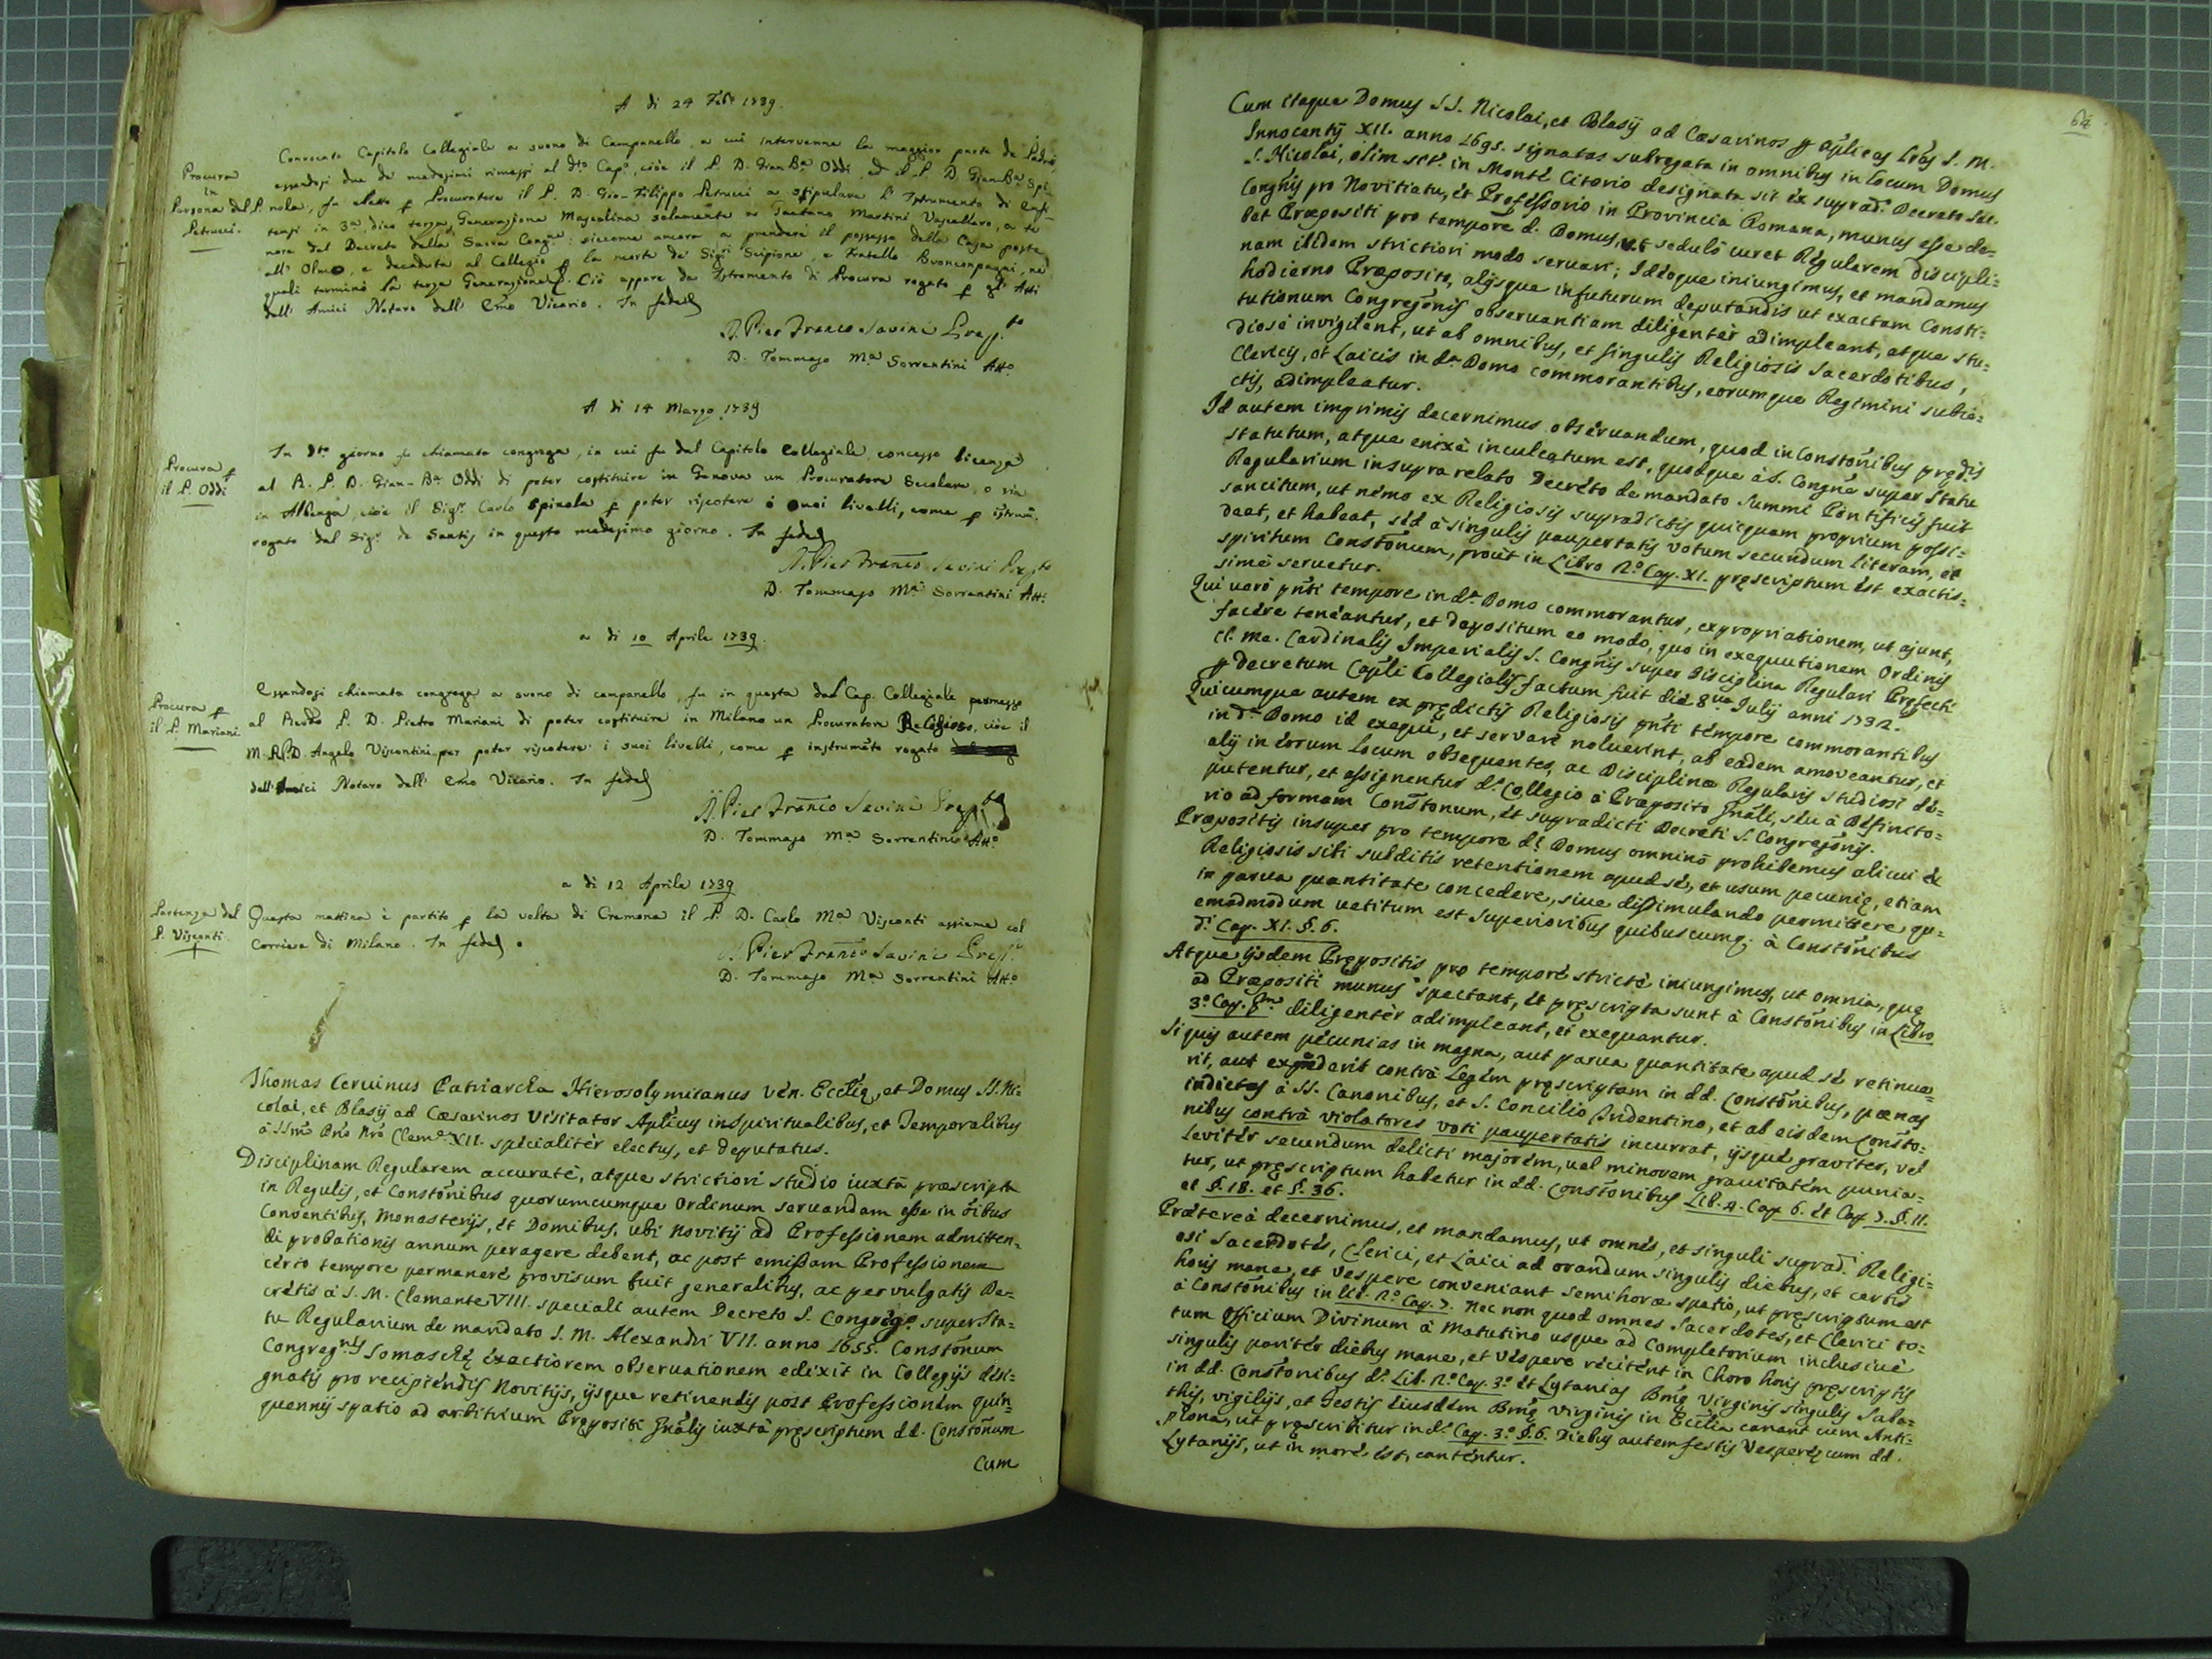 A di 24 Febr. 1739.
Convocato Capitolo Collegiale a suono di Campanello, a cui intervenne la maggior parte de Padri,
Procura
in
Persona del P.
Petrucci.
essendosi due de medesimi rimessi al dto. Capo. cioè il P. D. Gian Bta. Oddi, ed il P. D. Gian Bta. Spi-
nola, fu eletto per Procuratore il P. D. Gio. Filippo Petrucci a stipulare l'Istrumento di Enfi-
teusi in 3a, dico terza Generazione Mascolina solamente a Gaetano Martini Vascellaro, a te-
nore del Decreto della Sacra Congne: siccome ancora a prendere il possesso della Casa posta
all' Olmo, e decaduta al Collegio per la morte de' Sigri Scipione, e Fratello Buoncompagni, ne
quali terminò la terza Generazione. Ciò appare da Istromento di Procura rogato per gl' Atti
dell' Amici Notaro dell' Emo Vicario. In fede
D. Pier Franco Savini Prepto
D. Tommaso Ma Sorrentini Atto.
A di 14 Marzo 1739
Procura per
il P. Oddi
In dto giorno fu chiamata congrega, in cui fu dal Capitolo Collegiale concesso licenza
al R. P. D. Gian-Bta Oddi di poter costituire in Genova un Procuratore Secolare, o sia
in Albenga, cioè il Sigr. Carlo Spinola per poter riscotere i suoi livelli, come per istrum.
rogato dal Sigr. de Santis in questo medesimo giorno. In fede
D. Pier Franco Savini Prepto
D. Tommaso Ma Sorrentini Atto.
a di 10 Aprile 1739.
Procura per
il P. Mariani
Essendosi chiamata congrega a suono di campanello, fu in questa dal Cap. Collegiale permesso
al Rmo P. D. Pietro Mariani di poter costituire in Milano un Procuratore Religioso, cioè il
M. R. P. D. Angelo Viscontini per poter riscotere i suoi livelli, come per instrumto rogato
dall' Amici Notaro dell' Emo Vicario. In fede
D. Pier Franco Savini Prepto
D. Tommaso Ma Sorrentini Atto
a di 12 Aprile 1739
Partenza del
P. Visconti
Questa mattina è partito per la volta di Cremona il P. D. Carlo Ma Visconti assieme col
Corriere di Milano. In fede.
D. Pier Franco Savini Prepto
D. Tommaso Ma Sorrentini Atto
Thomas Cervinus Patriarcha Hierosolymitanus Ven. Ecclię, et Domus SS. Ni-
colai, et Blasij ad Cæsarinos Visitator Aplicus inspiritualibus, et Temporalibus
à SSmo Dno Nro Cleme XII. specialitèr electus, et deputatus.
Disciplinam Regularem accuratè, atque strictiori studio iuxtà præscripta
in Regulis, et Constonibus quorumcumque Ordinum servandam esse in oibus
Conventibus, Monasterijs, et Domibus, ubi Novitij ad Professionem admitten-
di probationis annum peragere debent, ac post emissam Professionem
certo tempore permanere provisum fuit generalibus, ac pervulgatis De-
cretis à S. M. Clemente VIII. speciali autem Decreto S. Congrege. super Sta-
tu Regularium de mandato S. M. Alexandri VII. anno 1655. Constonum
Congregnis Somaschę exactiorem observationem edixit in Collegijs desi-
gnatis pro recipiendis Novitijs, ijsque retinendis post Professionem quin-
quennij spatio ad arbitrium Prępositi Gnalis iuxtà pręscriptum dd. Constonum
Cum
64
Cum itaque Domus SS. Nicolai, et Blasij ad Cæsarinos per Aplicas Lras S. M.
Innocentij XII. anno 1695. signatas subrogata in omnibus in locum Domus
S. Nicolai, olim sit. in Monte Citorio designata sit ex suprad. Decreto Sac.
Congnis pro Novitiatu, et Professorio in Provincia Romana, munus esse de-
bet Præpositi pro tempore d. Domus, ut sedulò curet Regularem discipli-
nam ibidem strictiori modo servari; Ideoque iniungimus, et mandamus
hodierno Præposito, alijsque infuturum deputandis ut exactam Consti-
tutionum Congregonis observantiam diligentèr adimpleant, atque stu-
diosè invigilent, ut ab omnibus, et singulis Religiosis Sacerdotibus,
Clericis, et Laicis in da. Domo commorantibus, eorumque Regimini subie-
ctis, adimpleatur.
Id autem imprimis decernimus observandum, quod in Constonibus prędis
statutum, atque enixè inculcatum est, quodque à S. Congne super Statu
Regularium insupra relato Decreto de mandato Summi Pontificis fuit
sancitum, ut nemo ex Religiosis supradictis quicquam proprium possi-
deat, et habeat, sed à singulis paupertatis votum secundum literam, et
spiritum Constonum, prout in Libro 2o. Cap. XI. pręscriptum est exactis-
simè servetur.
Qui verò pnti tempore in da. Domo commorantur, expropriationem, ut ajunt,
facere teneantur, et depositum eo modo, quo in exequutionem Ordinis
cl. me. Cardinalis Imperialis S. Congnis super Disciplina Regulari Pręfecti
per decretum Capli Collegialis factum fuit die 8va Julij anni 1732.
Quicumque autem ex prędictis Religiosis pnti tempore commorantibus
in da. Domo id exequi, et servare noluerint, ab eadem amoveantur, et
alij in eorum locum obsequentes, ac Disciplinæ Regularis studiosi de-
putentur, et assignentur do. Collegio à Præposito Gnali, seu à Definito-
rio ad formam Constonum, et supradicti Decreti S. Congregonis.
Præpositis insuper pro tempore dę. Domus omninò prohibemus alicui ex
Religiosis sibi subditis retentionem apud se, et usum pecunię, etiam
in parva quantitate concedere, sive dissimulando permittere qu-
emadmodum vetitum est Superioribus quibuscumq; à Constonibus
di. Cap. XI. §. 6.
Atque ijsdem Prępositis pro tempore strictè iniungimus, ut omnia, quę
ad Præpositi munus spectant, et pręscripta sunt à Constonibus in Libro
3o. Cap. pmo diligentèr adimpleant, et exequantur.
Si quis autem pecunias in magna, aut parva quantitate apud se retinue-
rit, aut expenderit contrà Legem pręscriptam in dd. Constonibus, pœnas
indictas à SS. Canonibus, et S. Concilio Tridentino, et ab eisdem Consto-
nibus contrà violatores voti paupertatis incurrat, ijsque graviter, vel
levitèr secundum delicti majorem, vel minorem gravitatem punia-
tur, ut pręscriptum habetur in dd. Constonibus Lib. 4. Cap. 6. et Cap. 7. §. 11.
et §. 18. et §. 36.
Prætereà decernimus, et mandamus, ut omnes, et singuli suprad. Religi-
osi Sacerdotes, Clerici, et Laici ad orandum singulis diebus, et certis
horis mane, et Vespere conveniant semihoræ spatio, ut pręscriptum est
à Constonibus in Lib. 2o. Cap. 7. Nec non quod omnes Sacerdotes, et Clerici to-
tum Officium Divinum à Matutino usque ad Completorium inclusivè
singulis paritèr diebus mane, et Vespere recitent in Choro horis pręscriptis
in dd. Constonibus do. Lib. 2o. Cap. 3o. et Lytanias Bmę Virginis singulis Saba-
this, vigilijs, et Festis eiusdem Bmę Virginis in Ecclia canant cum Anti-
phona, ut pręscribitur in do. Cap. 3o. §. 6. Diebus autem festis Vesperę cum dd.
Lytanijs, ut in more est, cantentur.